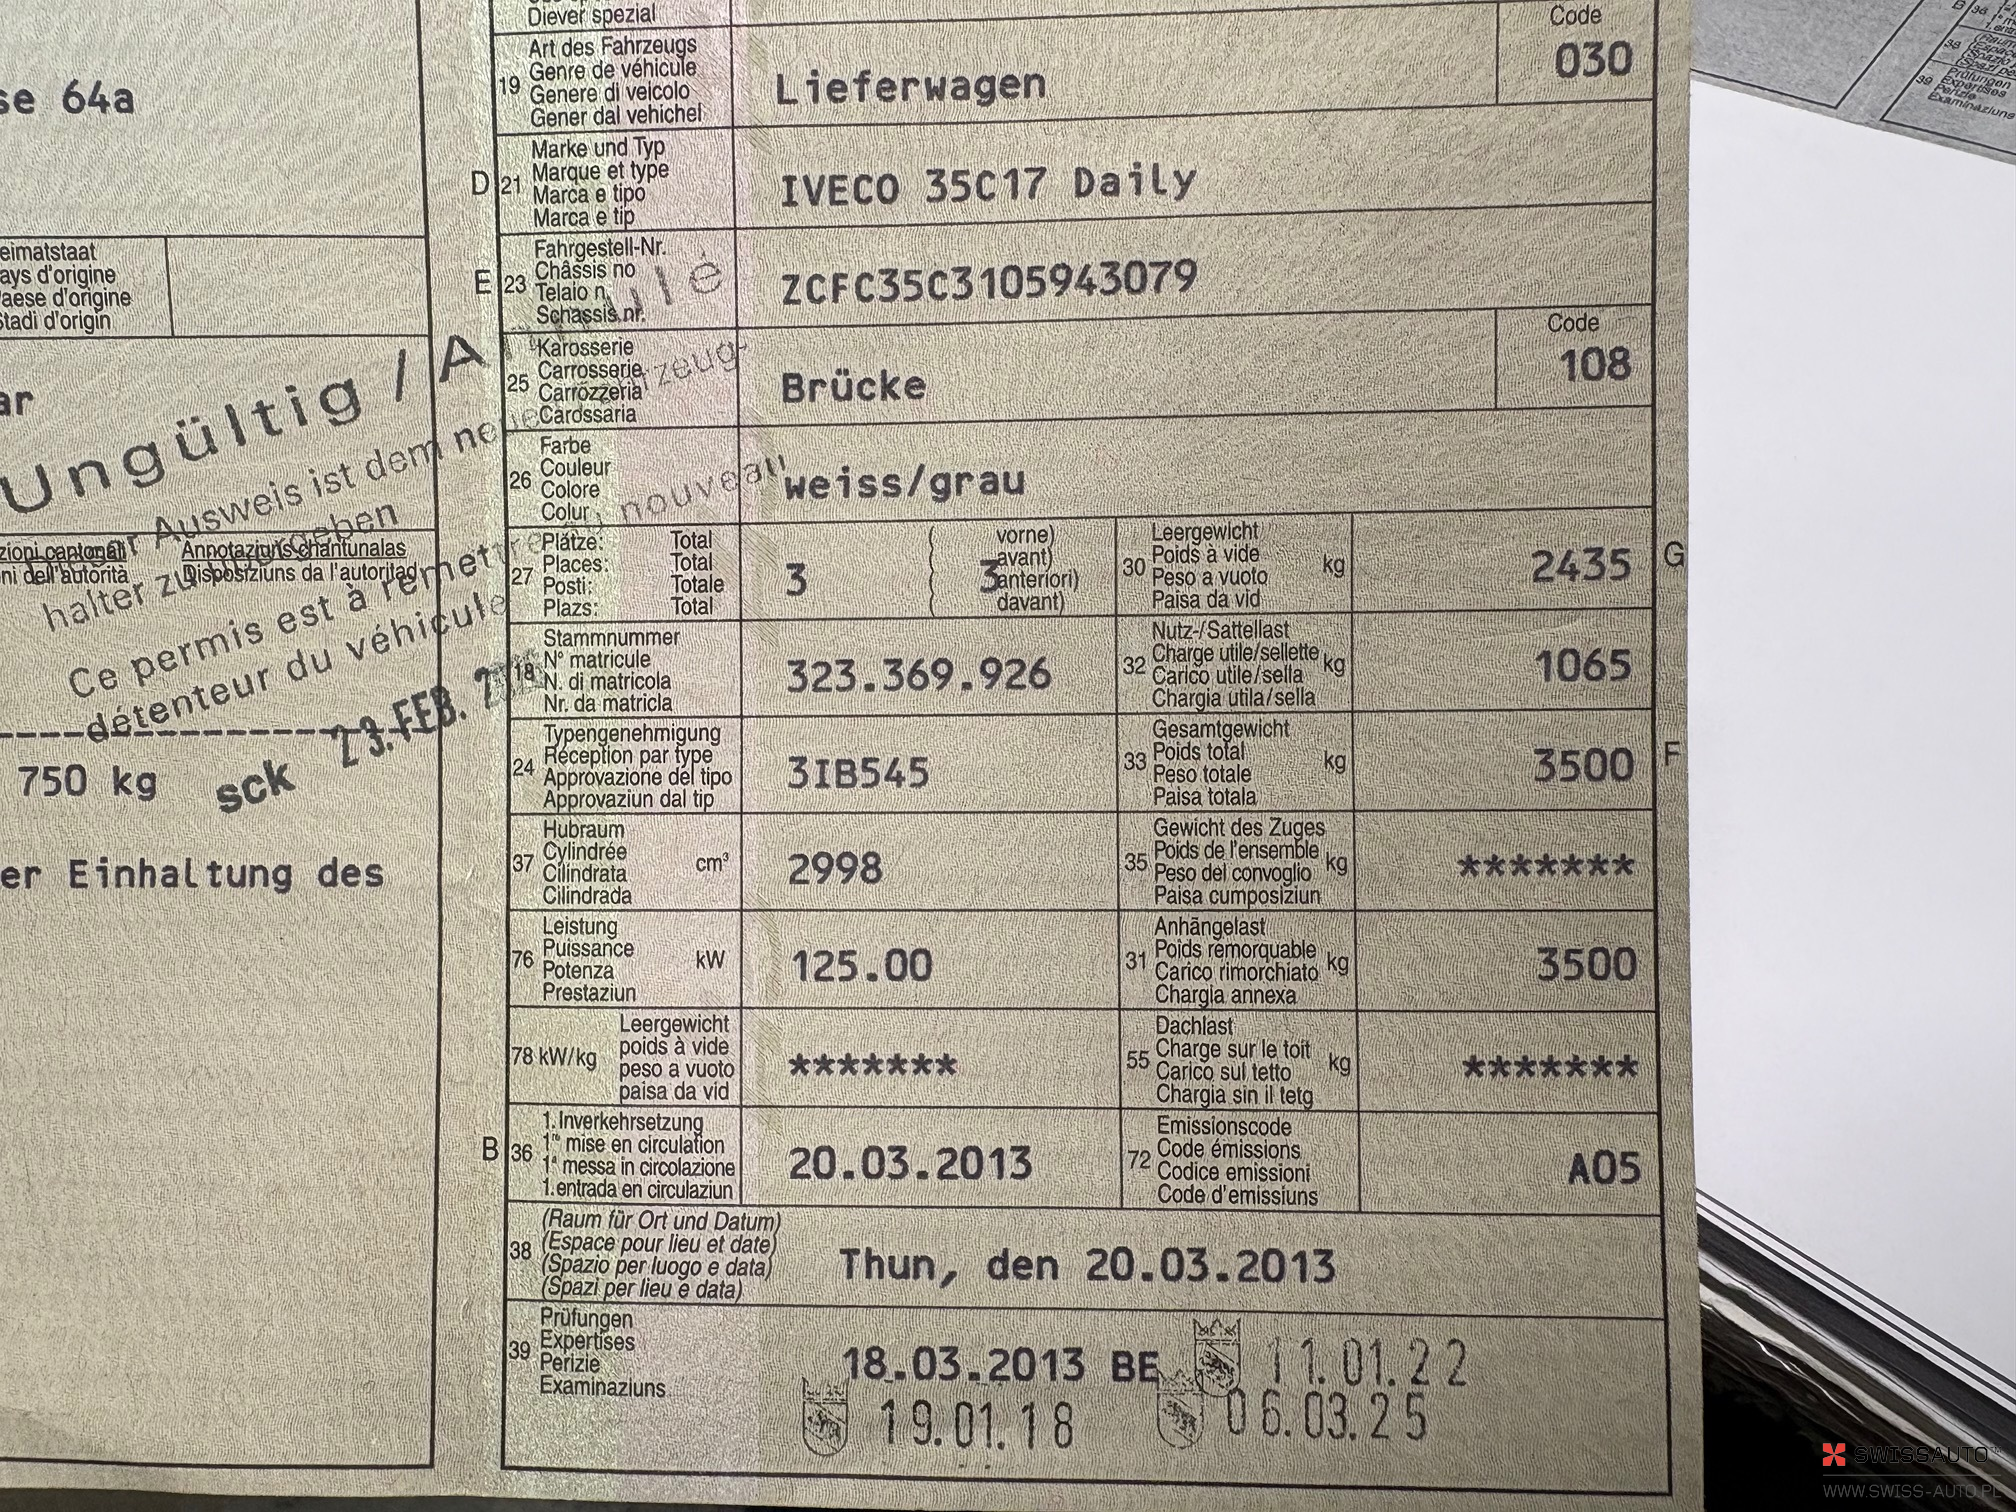 Diever spezial
se 64a
eimatstaat
ays d'origine
aese d'origine
tadi d'origin
ar
Ungültig / Annulé
Ausweis ist dem
halter
Ce permis est à remettre nouveau
détenteur du véhicule
23.FEB.
Annotaziuns chantunalas
ni dell'autorità Disposiziuns da l'autoritad
750 kg sck
er Einhaltung des
19 Art des Fahrzeugs
Genre de véhicule
Genere di veicolo
Gener dal vehichel
Lieferwagen
Code
030
D 21 Marke und Typ
Marque et type
Marca e tipo
Marca e tip
IVECO 35C17 Daily
E 23 Fahrgestell-Nr.
Châssis no
Telaio n.
Schassis nr.
ZCFC35C3105943079
25 Karosserie
Carrosserie
Carrozzeria
Carossaria
Brücke
Code
108
26 Farbe
Couleur
Colore
Colur
weiss/grau
27 Plätze: Total
Places: Total
Posti: Totale
Plazs: Total
3
3
vorne)
avant)
anteriori)
davant)
30 Leergewicht
Poids à vide
Peso a vuoto
Paisa da vid
kg
2435 G
18 Stammnummer
N° matricule
N. di matricola
Nr. da matricla
323.369.926
32 Nutz-/Sattellast
Charge utile/sellette
Carico utile/sella
Chargia utila/sella
kg
1065
24 Typengenehmigung
Réception par type
Approvazione del tipo
Approvaziun dal tip
3IB545
33 Gesamtgewicht
Poids total
Peso totale
Paisa totala
kg
3500 F
37 Hubraum
Cylindrée
Cilindrata
Cilindrada
cm³
2998
35 Gewicht des Zuges
Poids de l'ensemble
Peso del convoglio
Paisa cumposiziun
kg
*******
76 Leistung
Puissance
Potenza
Prestaziun
kW
125.00
31 Anhängelast
Poids remorquable
Carico rimorchiato
Chargia annexa
kg
3500
78 kW/kg
Leergewicht
poids à vide
peso a vuoto
paisa da vid
*******
55 Dachlast
Charge sur le toit
Carico sul tetto
Chargia sin il tetg
kg
*******
B 36 1. Inverkehrsetzung
1re mise en circulation
1a messa in circolazione
1. entrada en circulaziun
20.03.2013
72 Emissionscode
Code émissions
Codice emissioni
Code d'emissiuns
A05
38 (Raum für Ort und Datum)
(Espace pour lieu et date)
(Spazio per luogo e data)
(Spazi per lieu e data)
Thun, den 20.03.2013
39 Prüfungen
Expertises
Perizie
Examinaziuns
18.03.2013 BE 11.01.22
19.01.18 06.03.25
39 Prüfungen
Expertises
Perizie
Examinaziuns
SWISSAUTO
WWW.SWISS-AUTO.PL